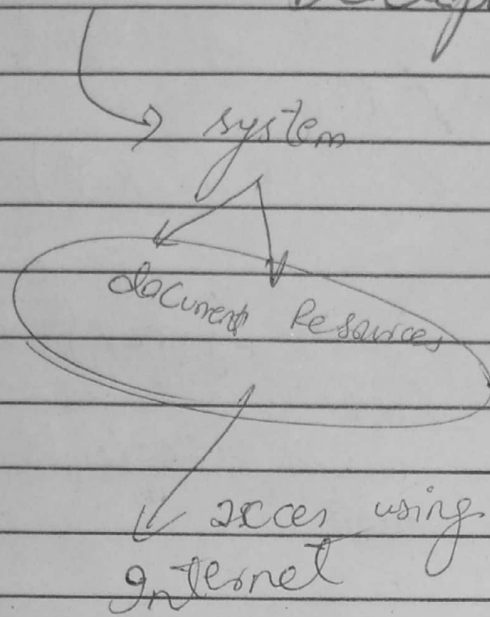 system
document Resources
acces using
Internet